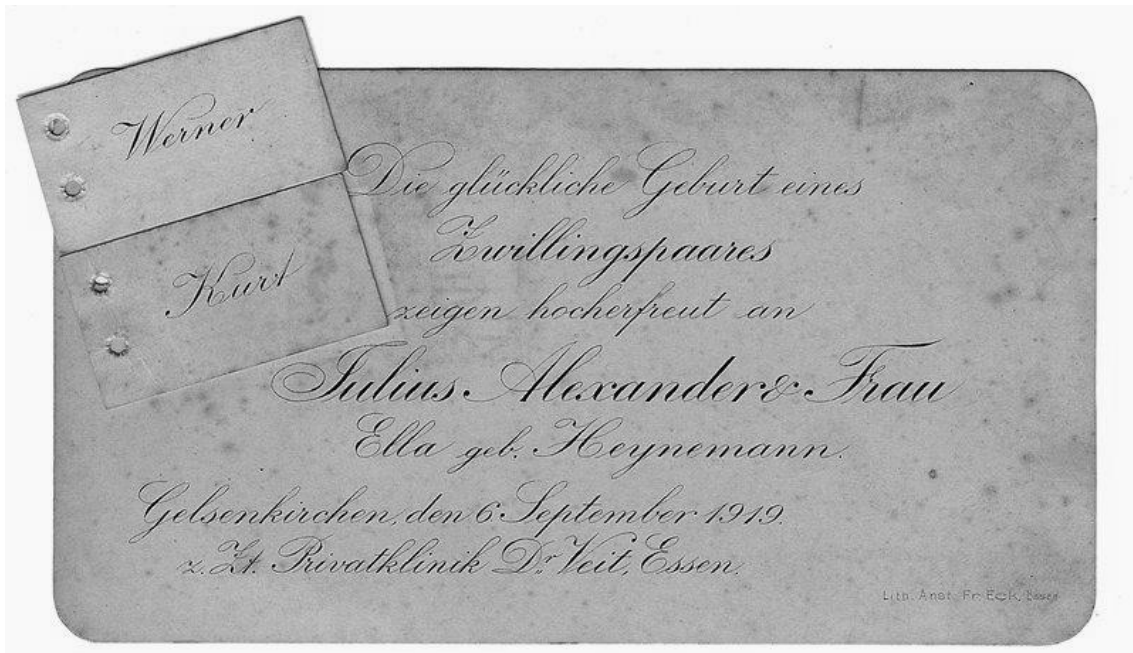 Werner
Kurt
Die glückliche Geburt eines
Zwillingspaares
zeigen hocherfreut an
Julius Alexander & Frau
Ella geb. Heynemann.
Gelsenkirchen, den 6 September 1919.
z. Zt. Privatklinik Dr. Veit, Essen.
Lith. Anst. Fr. Eck, Essen